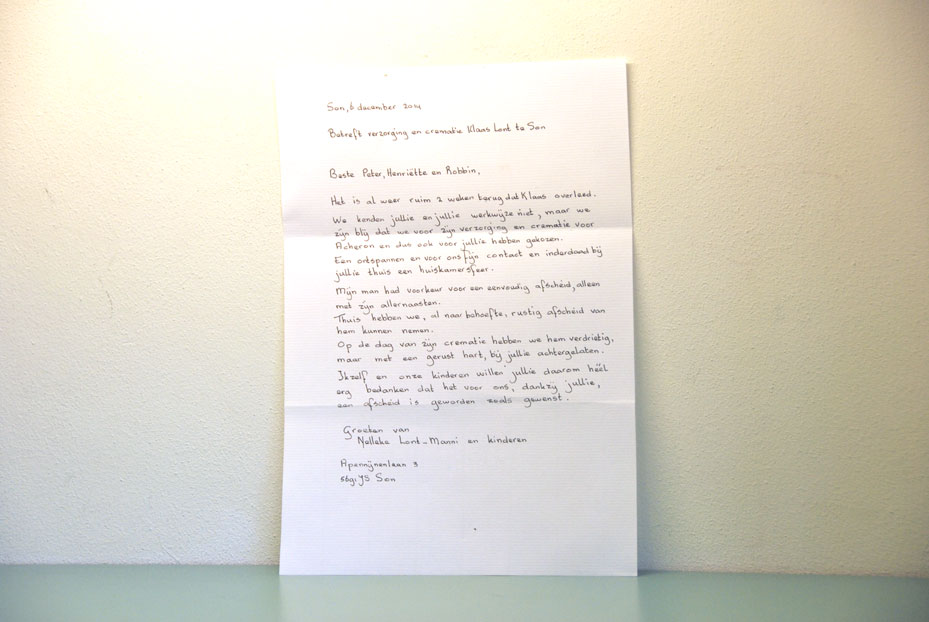 Son, 6 december 2014
Betreft verzorging en crematie Klaas Lont te Son
Beste Peter, Henriëtte en Robbin,
Het is al weer ruim 2 weken terug dat Klaas overleed.
We konden jullie en jullie werkwijze niet, maar we
zijn blij dat we voor zijn verzorging en crematie voor
Acheron en dus ook voor jullie hebben gekozen.
Een ontspannen en voor ons fijn contact en inderdaad bij
jullie thuis een huiskamersfeer.
Mijn man had voorkeur voor een eenvoudig afscheid, alleen
met zijn allernaasten.
Thuis hebben we, al naar behoefte, rustig afscheid van
hem kunnen nemen.
Op de dag van zijn crematie hebben we hem verdrietig,
maar met een gerust hart, bij jullie achtergelaten.
Ikzelf en onze kinderen willen jullie daarom héél
erg bedanken dat het voor ons, dankzij jullie,
een afscheid is geworden zoals gewenst.
Groeten van
Nelleke Lont-Manni en kinderen
Apennijnenlaan 3
5691 JS Son